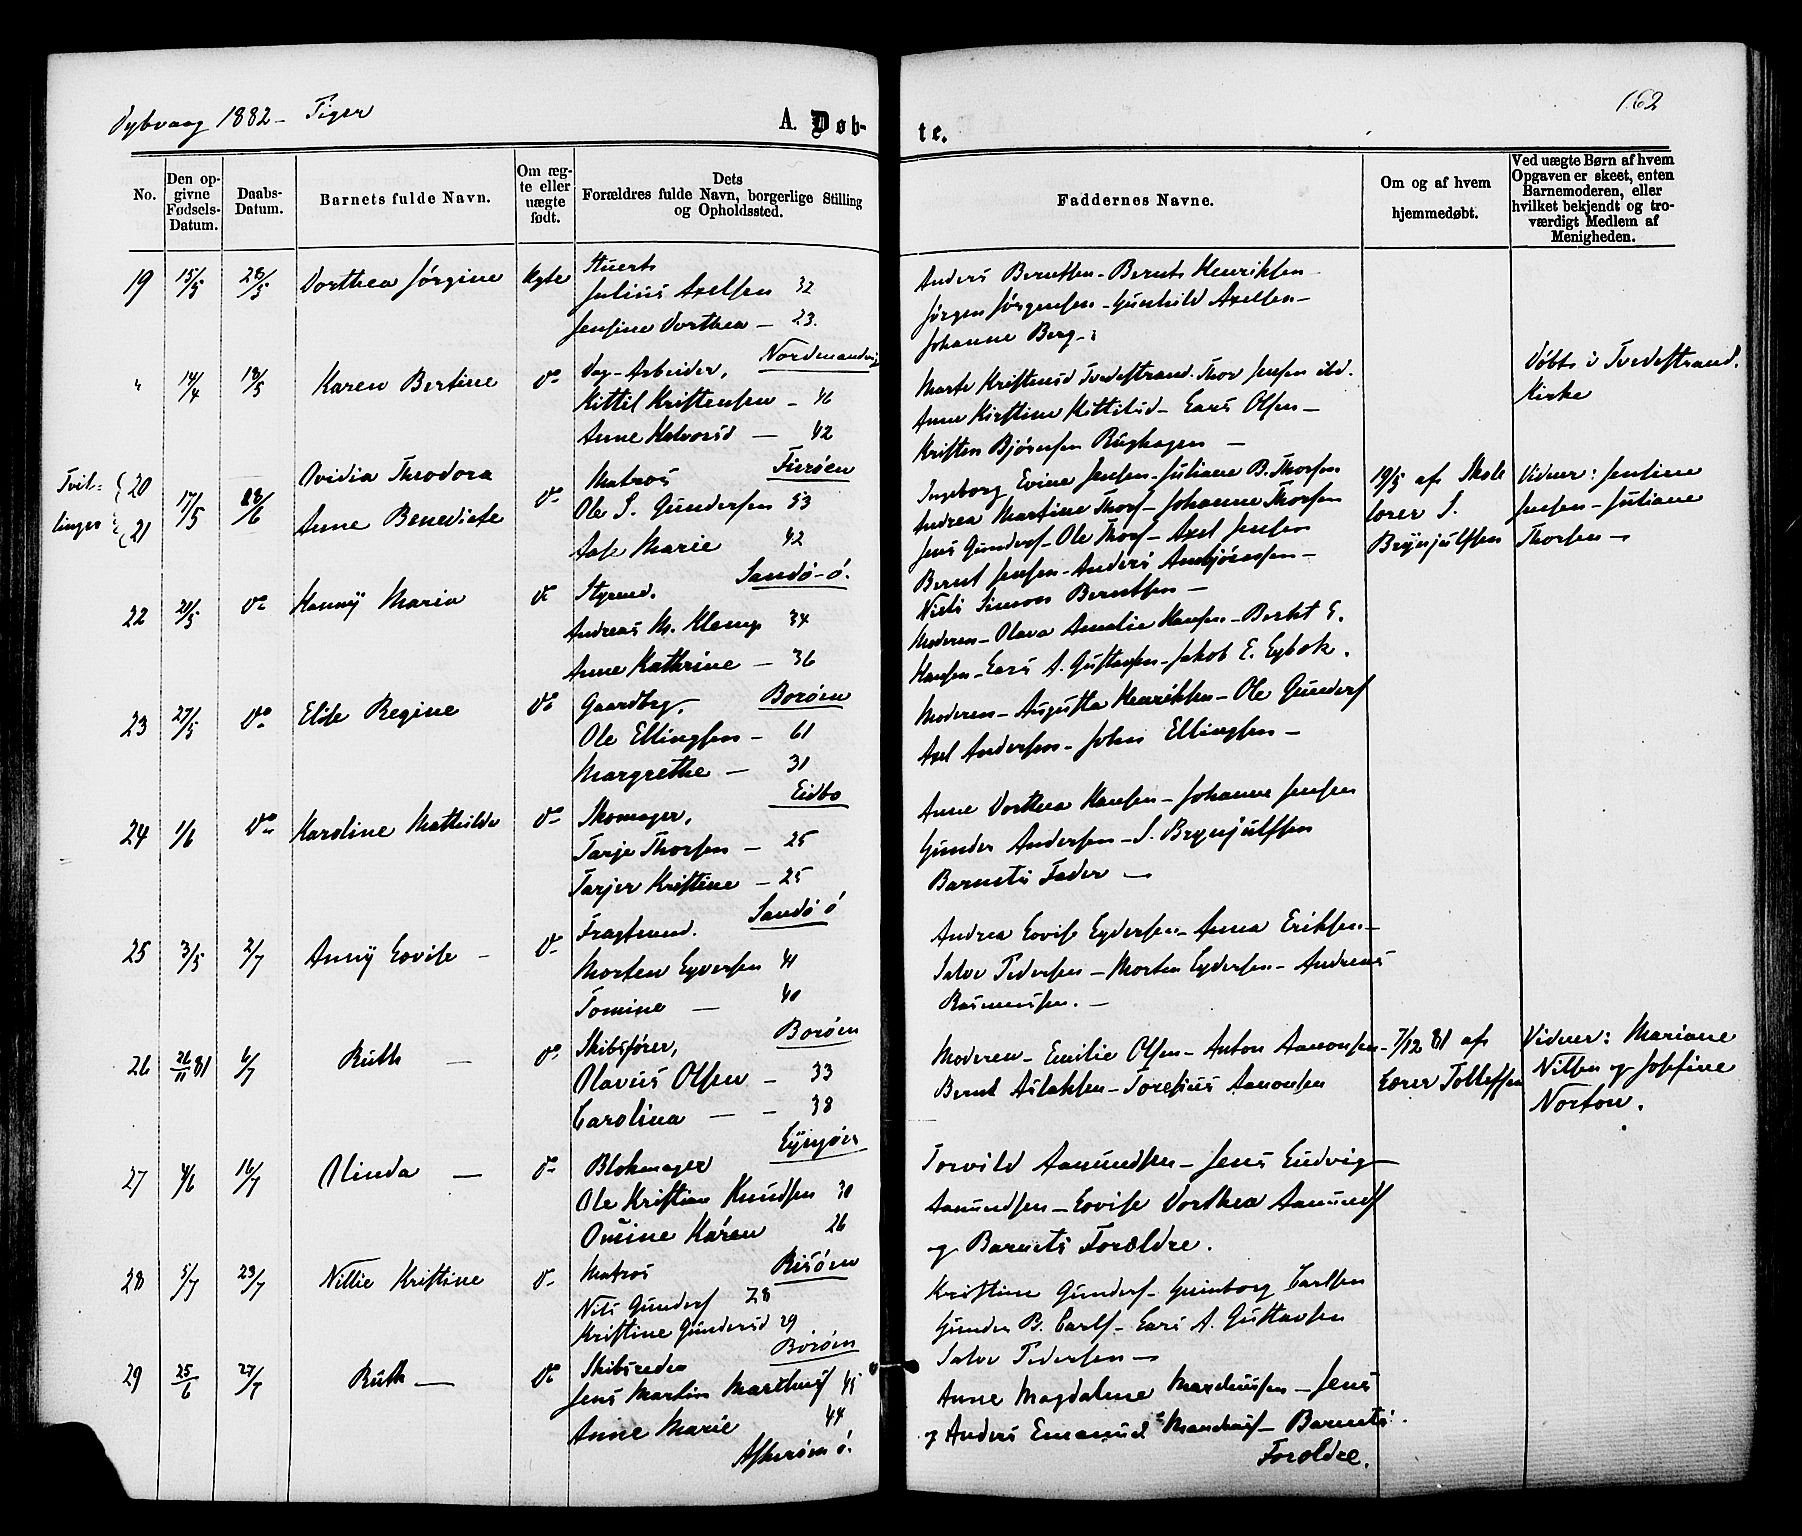 Dybvaag 1882 - Piger
A. Døbte.
162
No.
Den opgivne Fødsels-Datum.
Daabs-Datum.
Barnets fulde Navn.
Om ægte eller uægte født.
Dets Forældres fulde Navn, borgerlige Stilling og Opholdssted.
Faddernes Navne.
Om og af hvem hjemmedøbt.
Ved uægte Børn af hvem Opgaven er skeet, enten Barnemoderen, eller hvilket bekjendt og troværdigt Medlem af Menigheden.
19 15/5 28/5 Dorthea Jørgine
Stuerts
Julius Axelsen 32
Jensine Dorthea - 23.
Nordmandvig
Anders Berntsen - Bernts Henriksen -
Jørgen Jørgensen - Gunhild Axelsen -
Johanne Berg -
" 14/4 18/5 Karen Bertine Do
Dag-Arbeider,
Kittil Kristensen - 46
Anne Halvorsd - 42
Furøen
Marte Kristensd Tvedestrand. Thor Jensen ibd.
Anne Kirstine Kittilsd - Lars Olsen -
Kristen Bjørnsen Rughagen -
Døbts i Tvedestrand
Kirke
Tvillinger { 20 21 17/5 18/6
Ovidia Theodora
Anne Benedicte
Do
Matros
Ole S. Gundersen 53
Aase Marie 42
Sandø - ø.
Ingeborg Evine Jensen - Juliane B. Thorsen
Andrea Martine Thors - Johanne Thorsen
Jens Gunders - Ole Thors - Axel Jensen
Bernt Jensen - Anders Ambjørnsen -
Niels Simon Berntsen -
19/5 af Skole
lærer S.
Brynjulfsen
Vidner: Jentine
Jensen - Juliane
Thorsen -
22 20/5 Do Hanny Maria Do
Styrmd.
Andreas M. Klemp 34
Anne Kathrine - 36
Borøen
Moderen - Olava Amalie Hansen - Berht E.
Hansen - Lars A. Gustafsen - Jakob E. Eybok.
23 27/5 Do Elise Regine Do
Gaardbrg.
Ole Ellingsen - 61
Margrethe - 31
Eidbo
Moderen - Augusta Henriksen - Ole Gunders
Axel Andersen - John Ellingsen -
24 1/6 Do Karoline Mathilde Do
Skomager,
Tarje Thorsen - 25
Tarjer Kristine - 25
Sandø ø
Anne Dorthea Hansen - Johanne Jensen
Gunder Andersen - S. Brynjulfsen
Barnets Fader -
25 3/5 2/7 Anny Lovise - Do
Fragtmand.
Morten Eyversen 41
Tomine - 40
Borøen
Andrea Lovise Eydersen - Anna Eriksen -
Salve Pedersen - Morten Eydersen - Andreas
Rasmussen. -
26 26/11 81 6/7 Ruth - Do
Skibsfører,
Olavus Olsen - 33
Carolina - - 38
Moderen - Emilie Olsen - Anton Aanonsen -
Bernt Aslaksen - Toresius Aanonsen
7/12 81 af
Lærer Tollefsen
Vidner: Mariane
Nilsen og Josefine
Norton.
27 4/6 16/7 Olinda - Do
Blokmager
Ole Kristian Knudsen 30
Omine Karen 26
Risøen
Torvild Aanundsen - Jens Ludvig -
Aanundsen - Lovise Dorthea Aanunds
og Barnets Forældre.
28 5/7 23/7 Nillie Kristine Do
Matros
Nils Gunders 28
Kristine Gundersd 29
Borøen
Kristine Gunders - Guinborg Carlsen
Gunder B. Carls - Lars A. Gustavsen
Salve Pedersen -
29 25/6 27/7 Ruth - Do
Skibsreder
Jens Martin Marthins 45
Anne Marie 44
Askerøen ø.
Anne Magdalene - Jens
og Anders Emanuel - Barnets
Forældre.